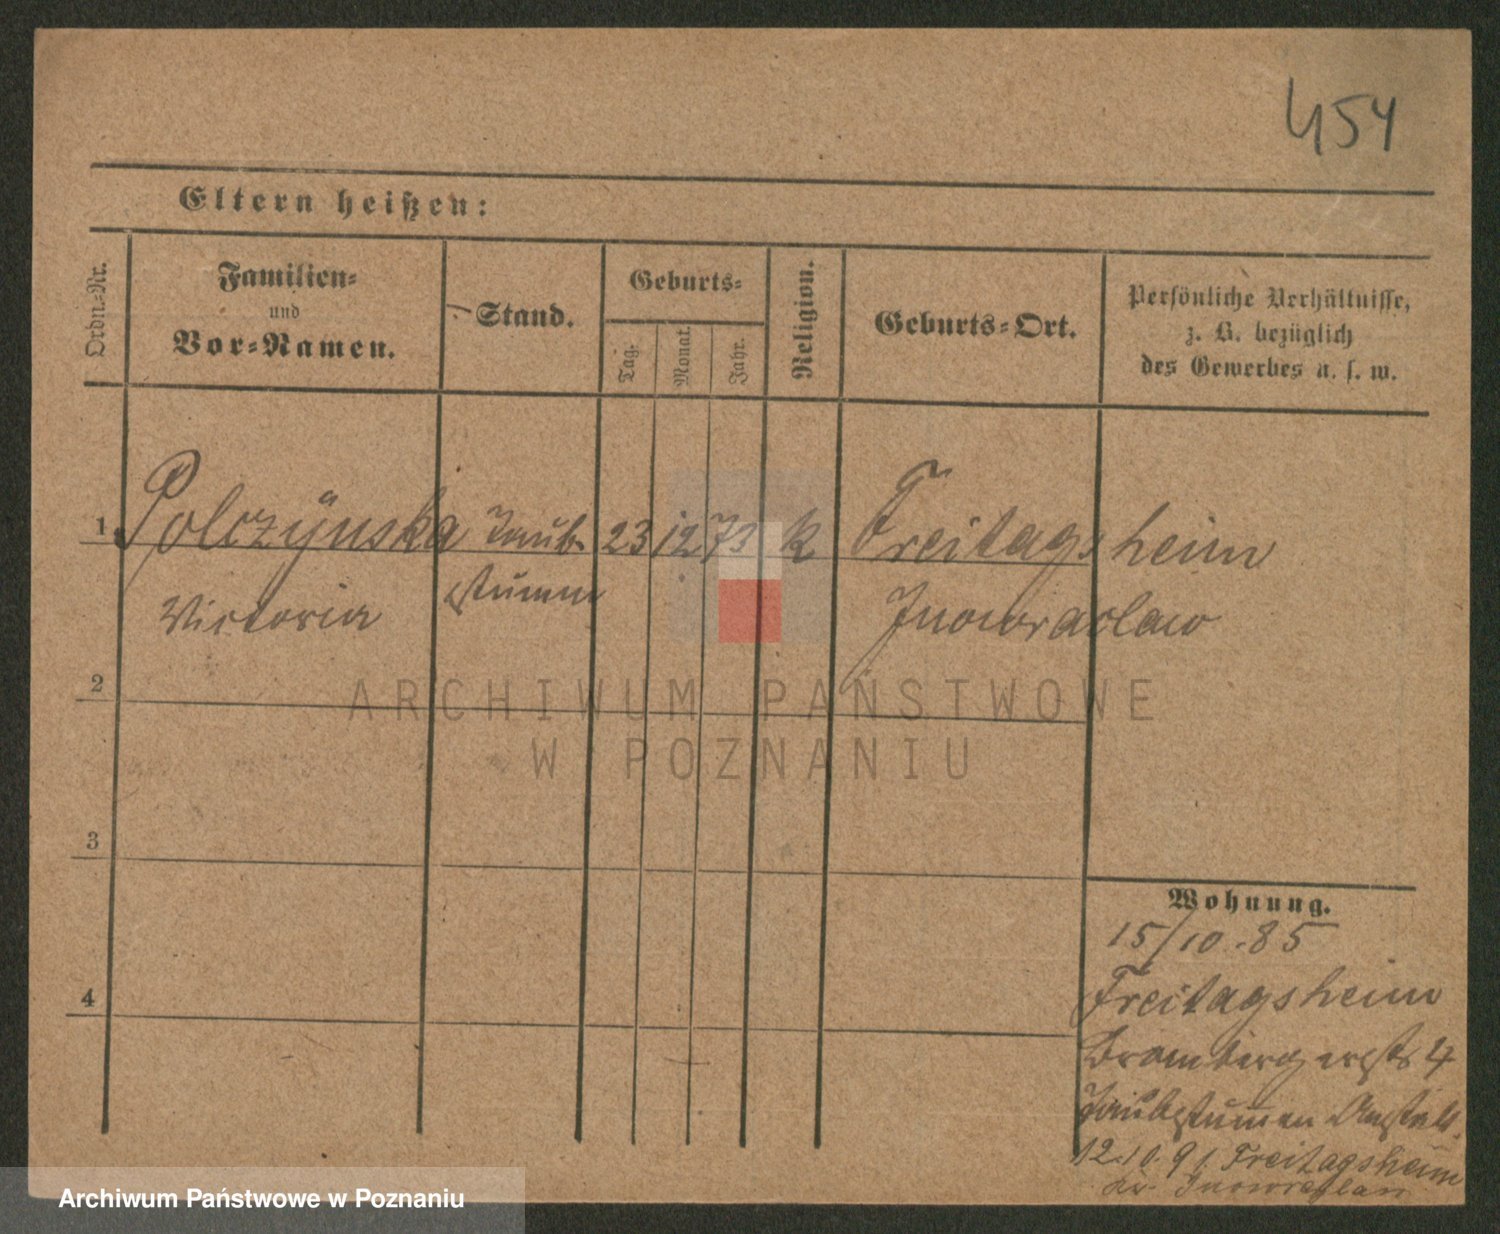 454
Eltern heißen:
Ordn.=Nr.
Familien=
und
Vor=Namen.
Stand.
Geburts=
Tag.
Monat.
Jahr.
Religion.
Geburts=Ort.
Persönliche Verhältnisse,
z. B. bezüglich
des Gewerbes u. s. w.
1 Polczÿnska Taub 23 12 73 k Freitagsheim
Victoria stumm Inowraclaw
2
ARCHIWUM PAŃSTWOWE
W POZNANIU
3
Wohnung.
15/10.85
Freitagsheim
4
Brombergerstr 4
Taubstummen Anstalt.
12.10.91 Freitagsheim
Kr. Inowrazlaw
Archiwum Państwowe w Poznaniu